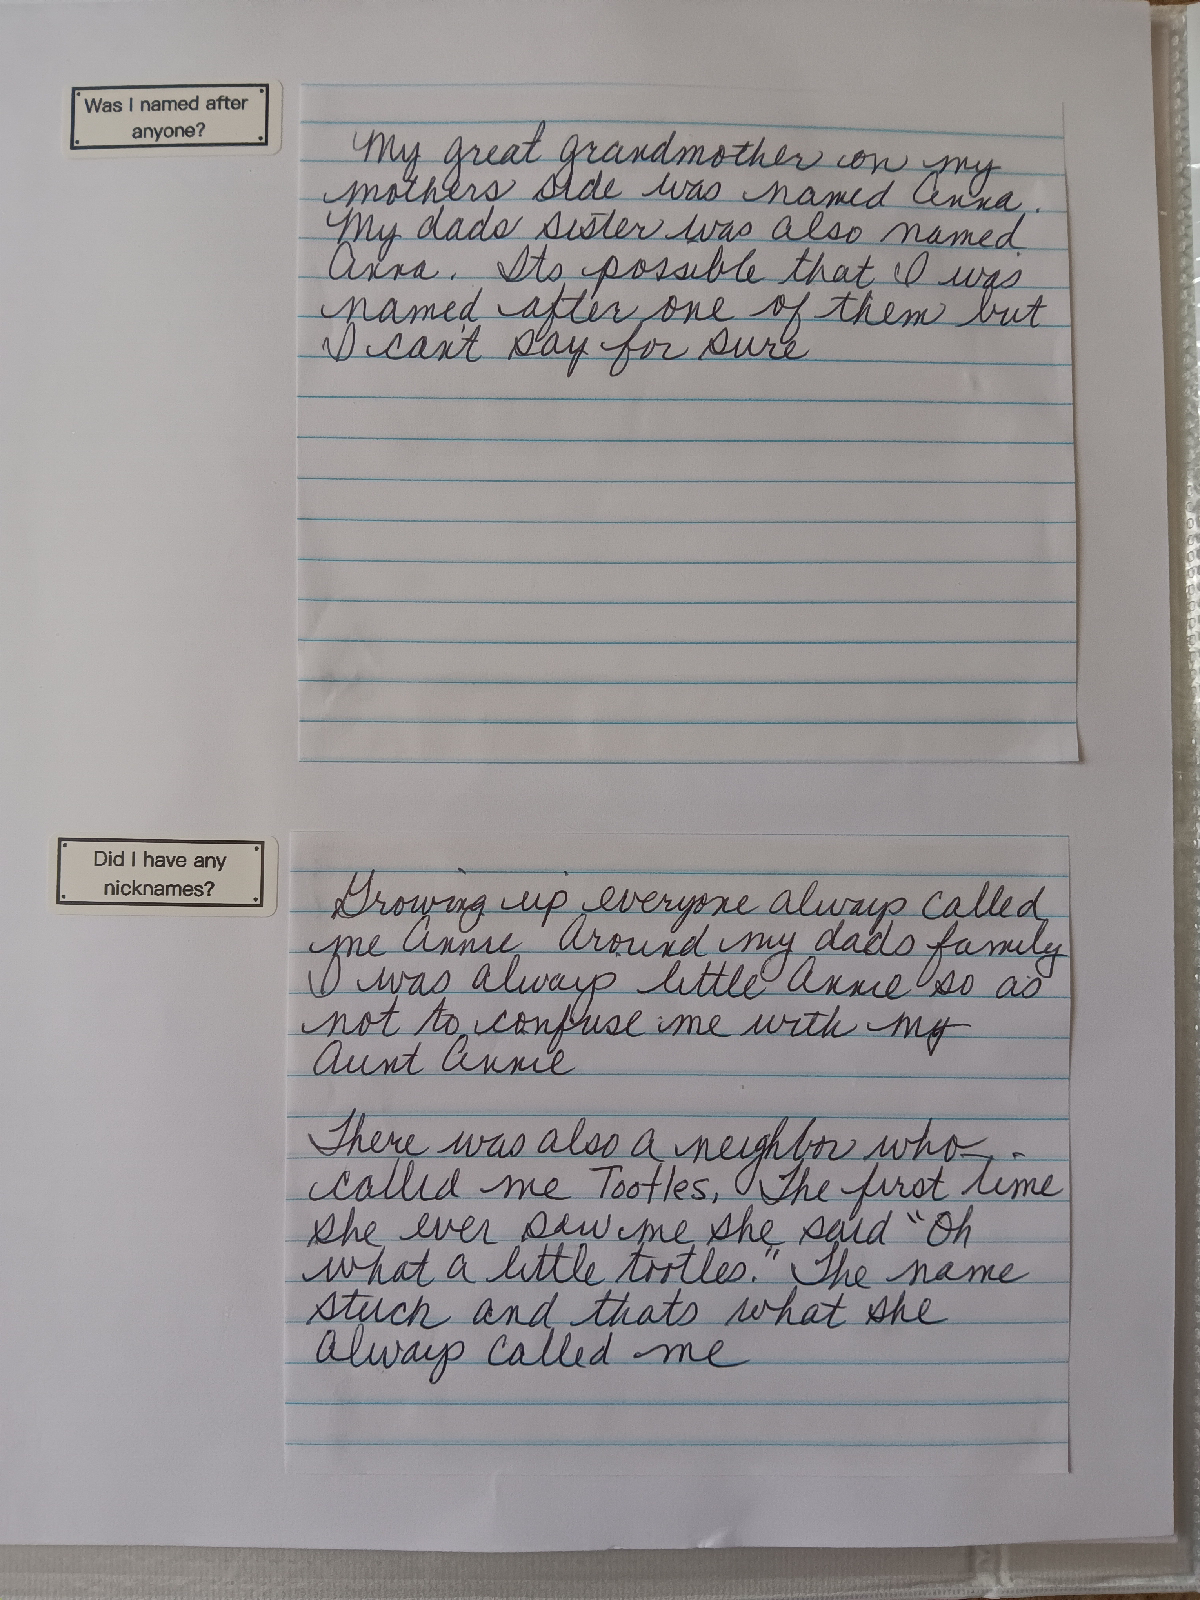 Was I named after
anyone?
My great grandmother on my
mothers side was named Anna.
My dads sister was also named
Anna. Its possible that I was
named after one of them but
I can't say for sure
Did I have any
nicknames?
Growing up everyone always called
me Annie Around my dads family
I was always little Annie so as
not to confuse me with my
Aunt Annie
There was also a neighbor who
called me Tootles, The first time
she ever saw me she said "Oh
what a little tootles." The name
stuck and thats what she
always called me